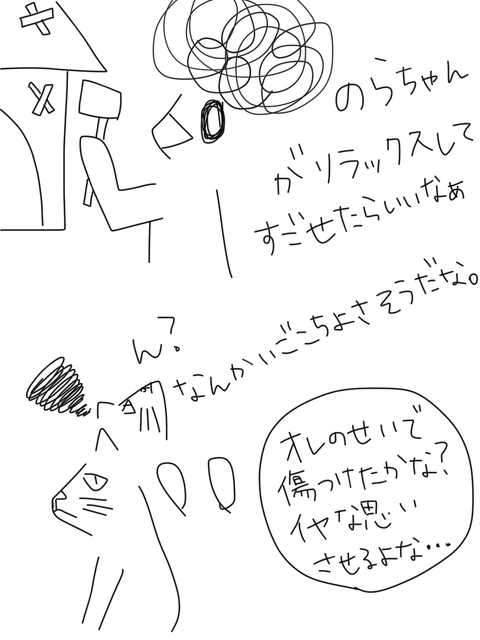 のらちゃん
がリラックスして
すごせたらいいなぁ
ん?
なんかいごこちよさそうだな。
オレのせいで
傷つけたかな?
イヤな思い
させるよな…